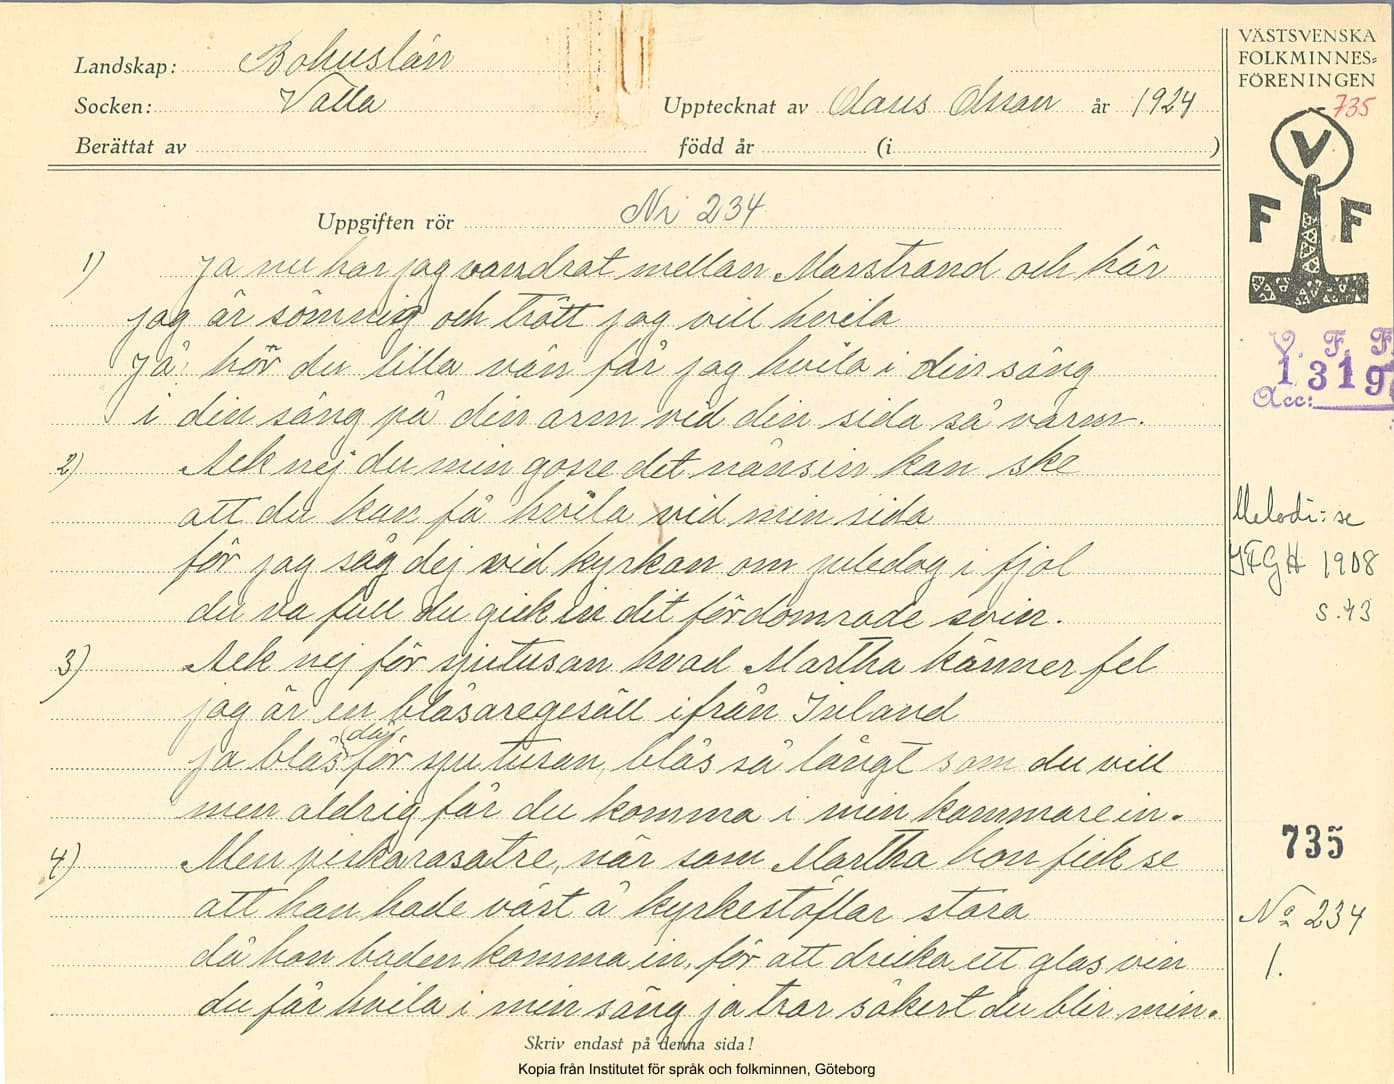 Landskap: Bohuslän
Socken: Valla
Upptecknat av Claus Olsson år 1924
Berättat av född år (i )
VÄSTSVENSKA
FOLKMINNES=
FÖRENINGEN
735
V
F F
V. F. F.
1319
Acc:
Uppgiften rör Nr 234
1) Ja nu har jag vandrat mellan Marstrand och här
jag är sömnig och trött jag vill hvila
Jå hör du lilla vän får jag hvila i din säng
i din säng på din arm vid din sida så varm.
2) Ack nej du min gosse det nånsin kan ske
att du kan få hvila vid min sida
för jag såg dej vid kyrkan om juledag i fjol
du va full du gick in dit fördomrade svin.
3) Ack nej för sjutusan hvad Martha känner fel
jag är en blåsaregesäll ifrån Inland
ja blås (då) för sjutusan, blås så långt som du vill
men aldrig får du komma i min kammare in.
4) Men piskarasatre, när som Martha hon fick se
att han hade väst å kyrkestöflar stora
då hon baden komma in, för att dricka ett glas vin
du får hvila i min säng ja tror säkert du blir min.
Melodi: se
YFGH 1908
s. 43
735
No 234
1.
Skriv endast på denna sida!
Kopia från Institutet för språk och folkminnen, Göteborg